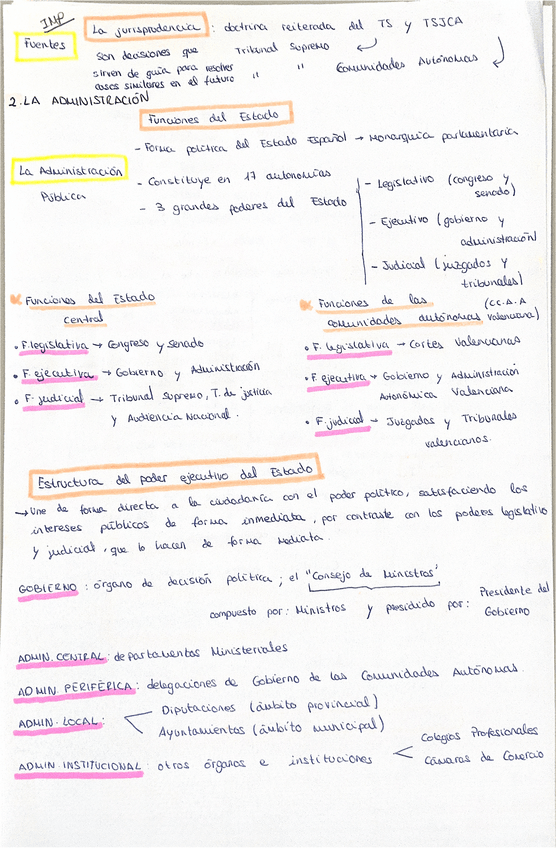 IMP
Fuentes
La jurisprudencia : doctrina reiterada del TS y TSJCA
Son decisiones que Tribunal Supremo
sirven de guía para resolver " " Comunidades Autónomas
casos similares en el futuro
2. LA ADMINISTRACIÓN
Funciones del Estado
- Forma política del Estado Español → Monarquía parlamentaria
La Administración
Pública
- Constituye en 17 autonomías
- 3 grandes poderes del Estado
- Legislativo (congreso y
senado)
- Ejecutivo (gobierno y
administración)
- Judicial (juzgados y
tribunales)
Funciones del Estado
central
• F. legislativa → Congreso y senado
• F. ejecutiva → Gobierno y Administración
• F. judicial → Tribunal Supremo, T. de justicia
y Audiencia Nacional.
Funciones de las (CC.A.A
comunidades autónomas valenciana)
• F. legislativa → Cortes Valencianas
• F. ejecutiva → Gobierno y Administración
Autonómica Valenciana
• F. judicial → Juzgados y Tribunales
valencianos.
Estructura del poder ejecutivo del Estado
→ Une de forma directa a la ciudadanía con el poder político, satisfaciendo los
intereses públicos de forma inmediata, por contraste con los poderes legislativo
y judicial, que lo hacen de forma mediata.
GOBIERNO : órgano de decisión política ; el "Consejo de Ministros"
compuesto por: Ministros y presidido por: Presidente del
Gobierno
ADMIN. CENTRAL : departamentos Ministeriales
ADMIN. PERIFÉRICA : delegaciones de Gobierno de las Comunidades Autónomas.
ADMIN. LOCAL :
Diputaciones (ámbito provincial)
Ayuntamientos (ámbito municipal)
ADMIN. INSTITUCIONAL : otros órganos e instituciones
Colegios Profesionales
Cámaras de Comercio